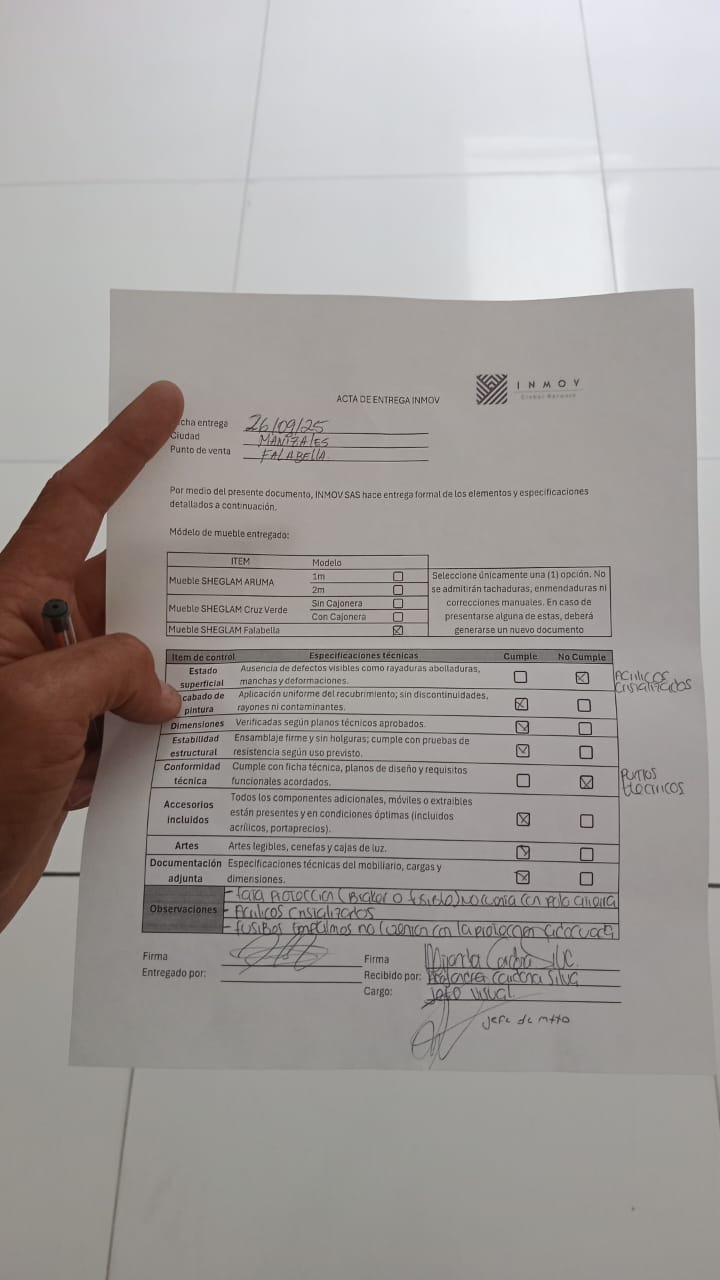 INMOV
Global Network
ACTA DE ENTREGA INMOV
cha entrega 26/09/25
Ciudad MANIZALES
Punto de venta FALABELLA
Por medio del presente documento, INMOV SAS hace entrega formal de los elementos y especificaciones
detallados a continuación.
Módelo de mueble entregado:
ITEM Modelo
Mueble SHEGLAM ARUMA 1m
2m
Mueble SHEGLAM Cruz Verde Sin Cajonera
Con Cajonera
Mueble SHEGLAM Falabella
Seleccione únicamente una (1) opción. No
se admitirán tachaduras, enmendaduras ni
correcciones manuales. En caso de
presentarse alguna de estas, deberá
generarse un nuevo documento
Item de control Especificaciones técnicas Cumple No Cumple
Estado superficial
Ausencia de defectos visibles como rayaduras abolladuras,
manchas y deformaciones.
Acrilicos
cristalizados
cabado de pintura
Aplicación uniforme del recubrimiento; sin discontinuidades,
rayones ni contaminantes.
Dimensiones Verificadas según planos técnicos aprobados.
Estabilidad estructural
Ensamblaje firme y sin holguras; cumple con pruebas de
resistencia según uso previsto.
Conformidad técnica
Cumple con ficha técnica, planos de diseño y requisitos
funcionales acordados.
Puntos
Electricos
Accesorios incluidos
Todos los componentes adicionales, móviles o extraibles
están presentes y en condiciones óptimas (incluidos
acrílicos, portaprecios).
Artes Artes legibles, cenefas y cajas de luz.
Documentación adjunta
Especificaciones técnicas del mobiliario, cargas y
dimensiones.
Observaciones
- falta Proteccion ( o ) No cuenta con Polo a tierra
- Acrilicos cristalizados
- fusibos empalmos no cuentan con la proteccion adecuada
Firma
Entregado por:
Firma
Recibido por: Cardona Silva
Cargo: Jefe Visual
Jefe de mtto